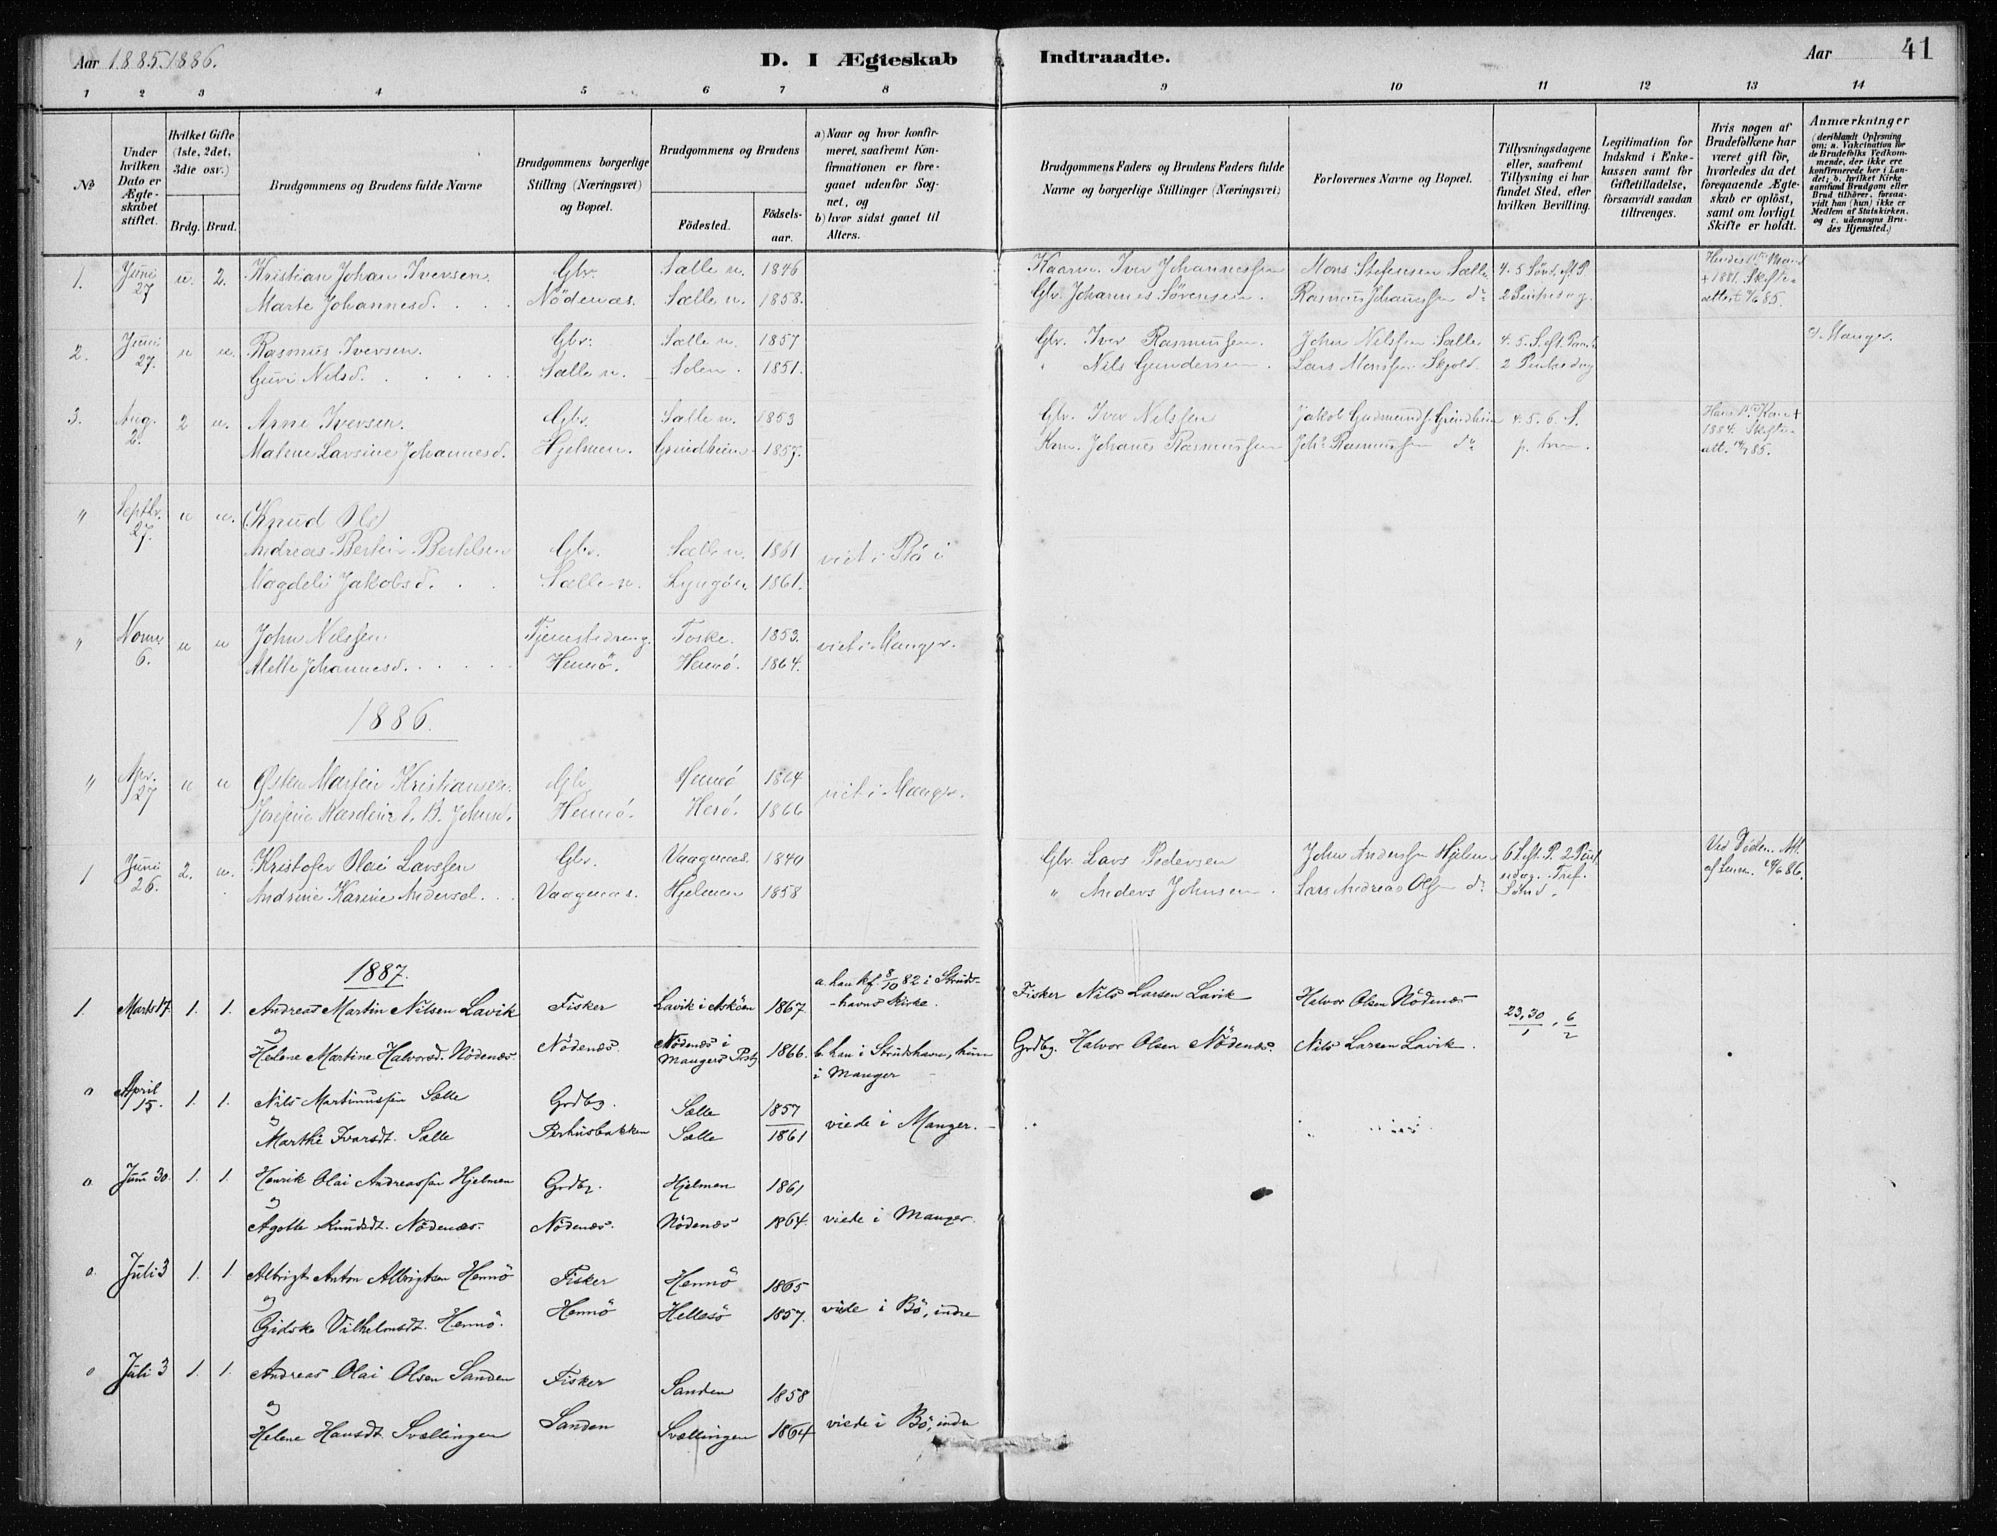 Aar 1885.1886.
D. I Ægteskab Indtraadte.
Aar
41
1 2 3 4 5 6 7 8 9 10 11 12 13 14
No
Under hvilken Dato er Ægteskabet stiftet.
Hvilket Gifte (1ste, 2det, 3die osv.)
Brdg. Brud.
Brudgommens og Brudens fulde Navne
Brudgommens borgerlige Stilling (Næringsvei) og Bopæl.
Brudgommens og Brudens
Födested. Födselsaar.
a) Naar og hvor konfirmeret, saafremt Konfirmationen er foregaaet udenfor Sognet, og
b) hvor sidst gaaet til Alters.
Brudgommens Faders og Brudens Faders fulde Navne og borgerlige Stillinger (Næringsvei)
Forlovernes Navne og Bopæl.
Tillysningsdagene eller, saafremt Tillysning ei har fundet Sted, efter hvilken Bevilling.
Legitimation for Indskud i Enkekassen samt for Giftetilladelse, forsaavidt saadan tiltrænges.
Hvis nogen af Brudefolkene har været gift för, hvorledes da det foregaaende Ægteskab er oplöst, samt om lovligt Skifte er holdt.
Anmærkninger
(deriblandt Oplysning om: a. Vakcination for de Brudefolks Vedkommende, der ikke ere konfirmerede her i Landet; b. hvilket Kirkesamfund Brudgom eller Brud tilhörer, forsaavidt han (hun) ikke er Medlem af Statskirken, og c. udensogns Brudes Hjemsted.)
1. Juni 27 u. 2. Kristian Johan Iversen. Gbr. Sælle n. 1846 Kaarm. Iver Johannessen Mons Stefensen Sælle 4. 5 Sönd. eft. P.
Marte Johannesd. Nödenæs. Sælle n. 1858. Gbr. Johannes Sörensen. Rasmus Johanessen do 2 Pintsedag.
Hendes 1ste Mand + 1881. Skifte-attest 85.
2. Juni 27. u u. Rasmus Iversen. Gbr. Sælle n. 1857 Gbr. Iver Rasmussen. John Nilssen Sælle 4. 5. S. eft. Paas.
Guri Nilsd. Sælle n. Solen. 1851. " Nils Gundersen Lars Monssen Skjold. 2 Pintsedag
c) Manger.
3. Aug. 2. 2 u. Arne Iversen. Gbr. Sælle n. 1853 Gbr. Iver Nilssen Jakob Gudmunds. Grindheim 4. 5. 6. S.
Malene Lavsine Johannesd. Hjelmen. Grindheim 1857. Johanes Rasmussen Johs Rasmussen do p. trin.
Hans 1ste Kone + 1884. Skifte-att. 85.
" Septbr. 27. u u. (Knud Ols)
Andreas Bertin Bertelsen Gbr. Sælle n. 1861 viet i Bö i
Magdeli Jakobsd. Sælle n. Lyngöen 1861.
" Novbr 6. u u John Nilssen Tjenestedreng. Toske. 1853. viet i Manger.
Mette Johannesd. Hennö. Hennö. 1864.
1886.
" Apr. 27 u u Östen Martin Kristiansen. Gbr. Hennö 1864 viet i Manger.
Josefine Nardine E. B. Johnsd. Hennö. Herö. 1866
1 Juni 26. 2. u. Kristofer Olai Larssen Gbr. Vaagenæs. 1840 Gbr. Lars Pedersen John Anderssen Hjelmen 6 S. eft. P. 2. Pintsedag. Tref. Sönd.
Andrine Karine Andersd. Vaagenæs. Hjelmen 1858 " Anders Johnsen. Lars Andreas Olsen do
Ved Döden. Att. af Lensm. 86.
1887.
1. Marts 17. 1. 1. Andreas Martin Nilsen Lavik Fisker Lavik i Asköen 1867. a. han kf. 8/10 82 i Strudshavns Kirke. Fisker Nils Larsen Lavik Halvor Olsen Nödenæs 23, 30/1, 6/2
og
Helene Martine Halvorsd. Nödenæs. Nödenæs. Nödenæs i Mangers Prstg 1866. b. han i Strudshavn, hun i Manger Grdbg. Halvor Olsen Nödenæs. Nils Larsen Lavik.
o April 15. 1. 1. Nils Martinussen Sælle Grdbg. Sælle 1857 viede i Manger.
og
Marthe Ivarsdt. Sælle Perhusbakken Sælle 1861
o. Juni 30. 1. 1. Henrik Olai Andreassen Hjelmen Grdbg. Hjelmen 1861
og
Agathe Knudsdt. Nödenæs. Nödenæs. Nödenæs 1864. viede i Manger.
o. Juli 3 1. 1 Albrigt Anton Albrigtsen Hennö Fisker Hennö 1865
og
Gidske Vilhelmsdt. Hennö. Hennö Hellesö 1857. viede i Bö, indre
o Juli 3 1. 1. Andreas Olai Olsen Sanden Fisker Sanden 1858
og
Helene Hansdt. Svællingen Sanden Svællingen 1864 viede i Bö, indre